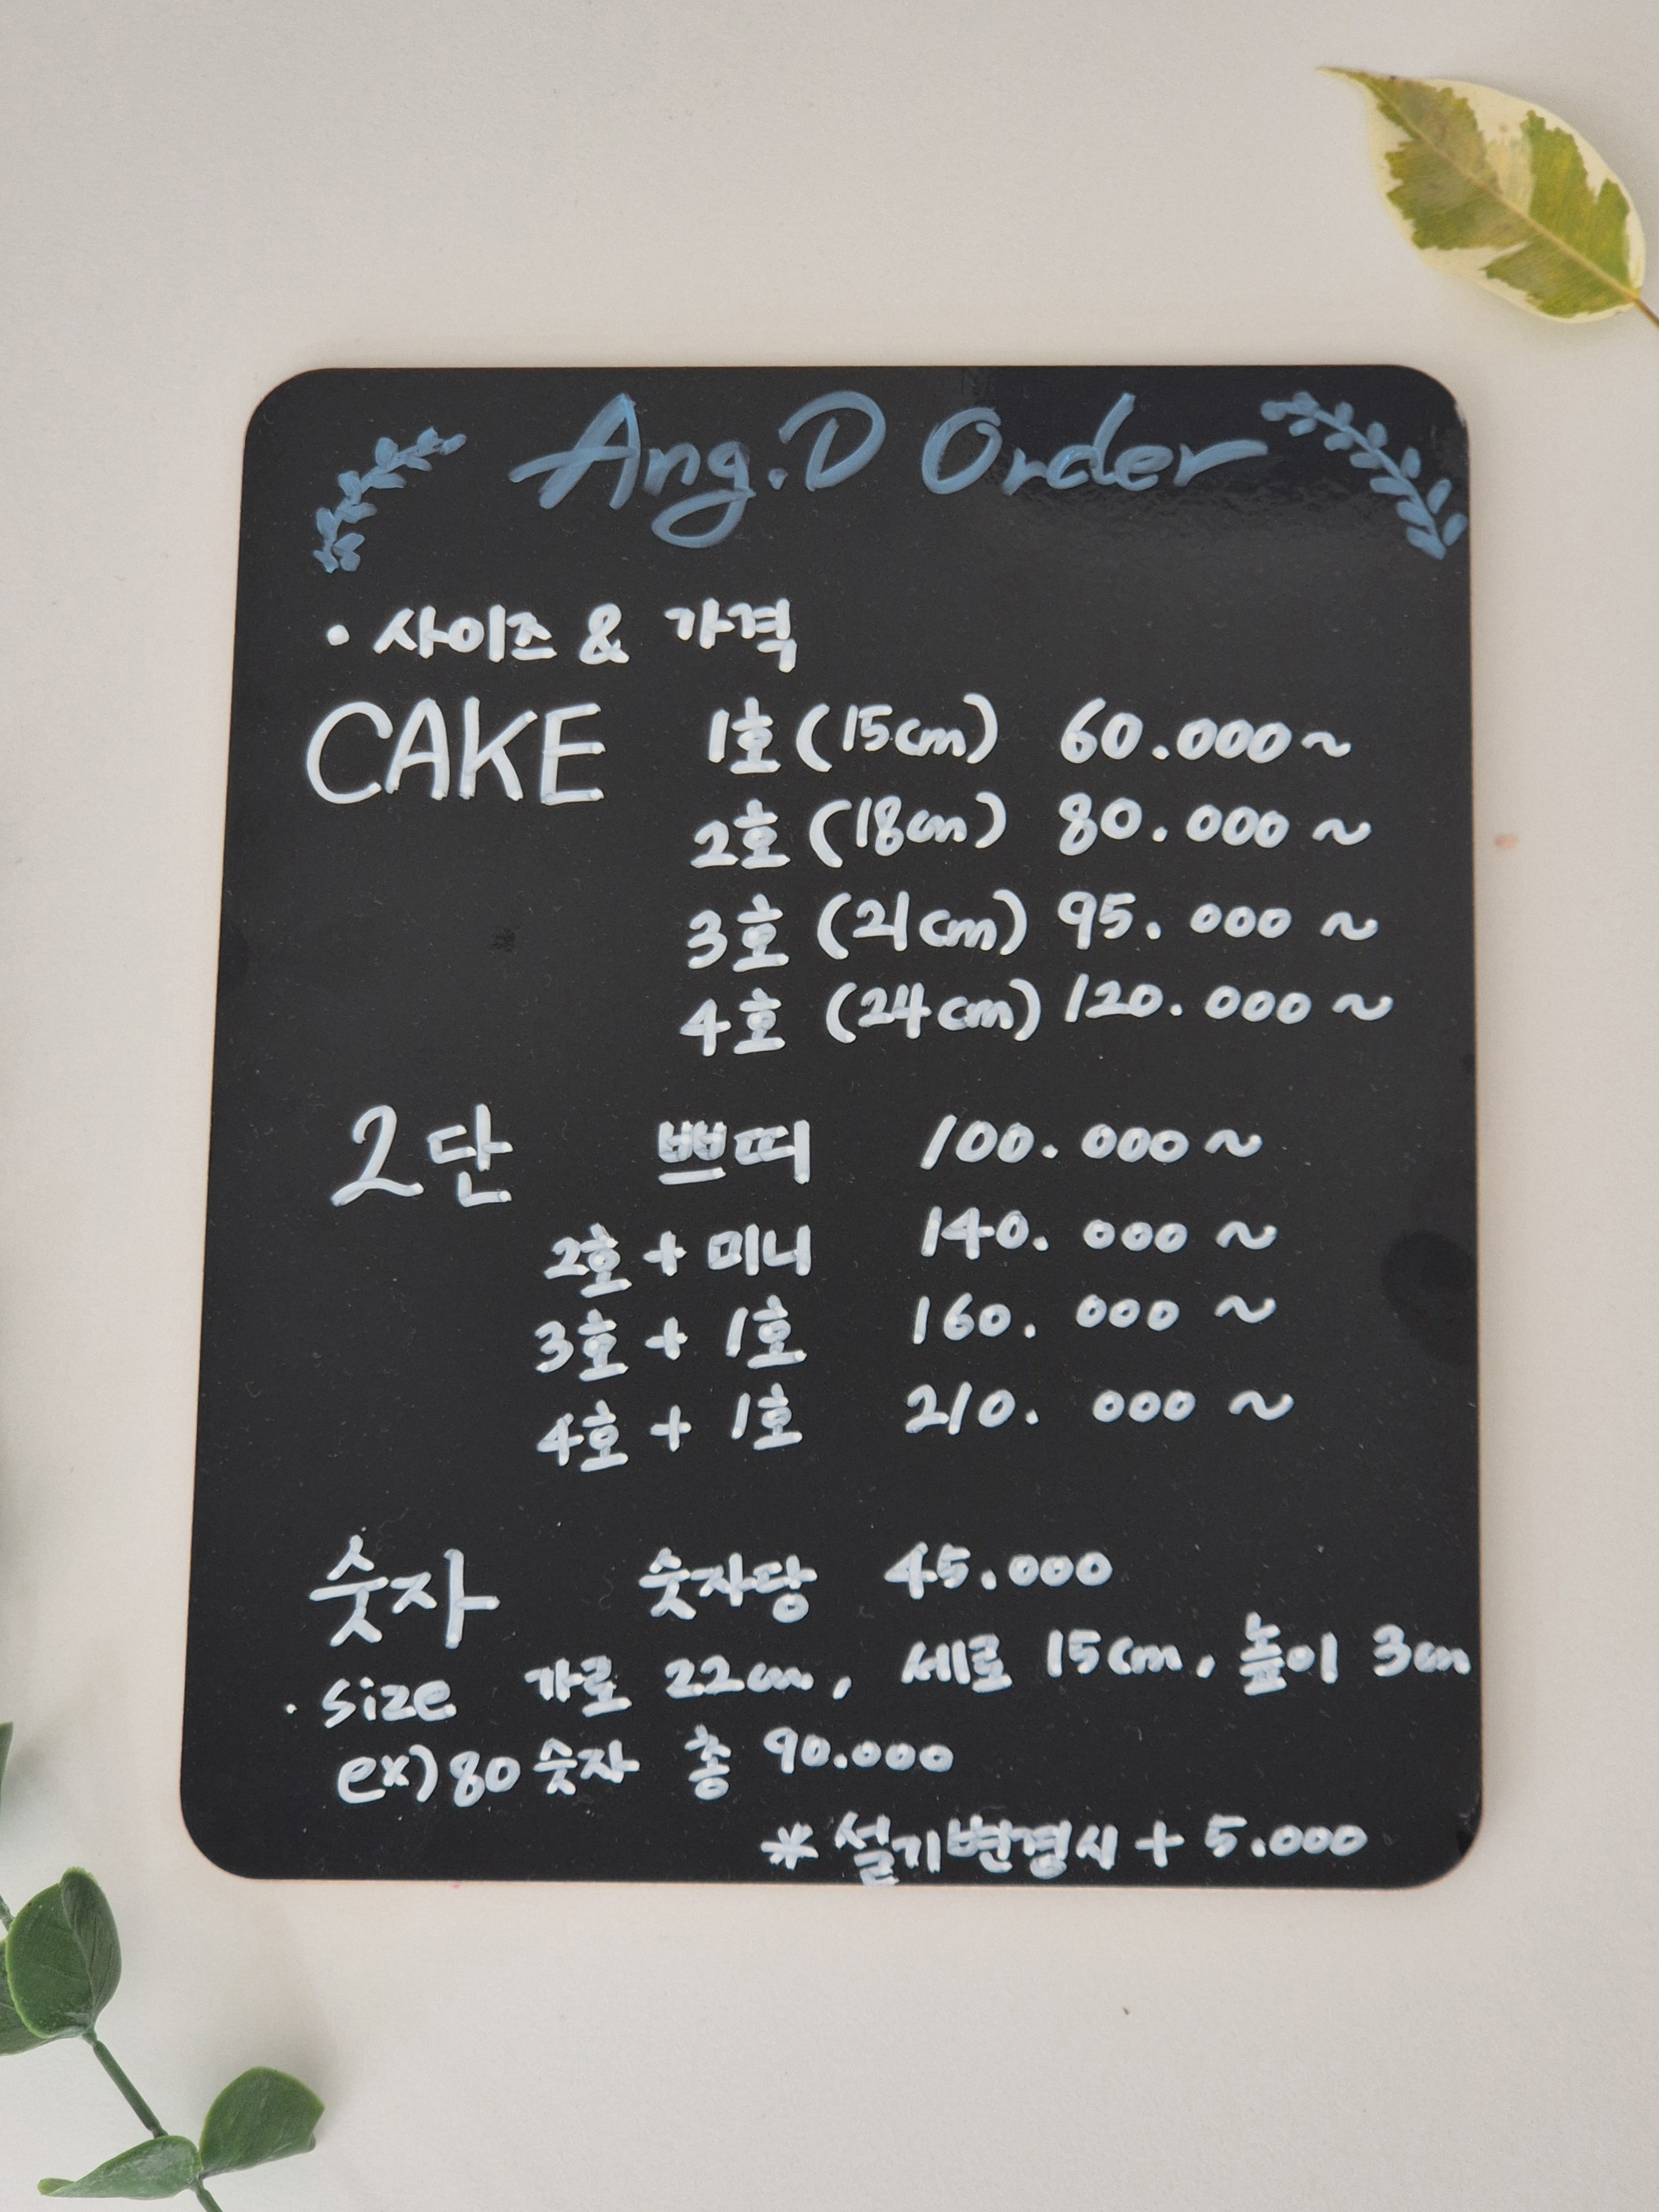 Ang.D Order
• 사이즈 & 가격
CAKE 1호 (15cm) 60.000~
2호 (18cm) 80.000~
3호 (21cm) 95.000~
4호 (24cm) 120.000~
2단 쁘띠 100.000~
2호 + 미니 140.000~
3호 + 1호 160.000~
4호 + 1호 210.000~
숫자 숫자당 45.000
· size 가로 22cm, 세로 15cm, 높이 3cm
ex) 80 숫자 총 90.000
* 설기변경시 + 5.000